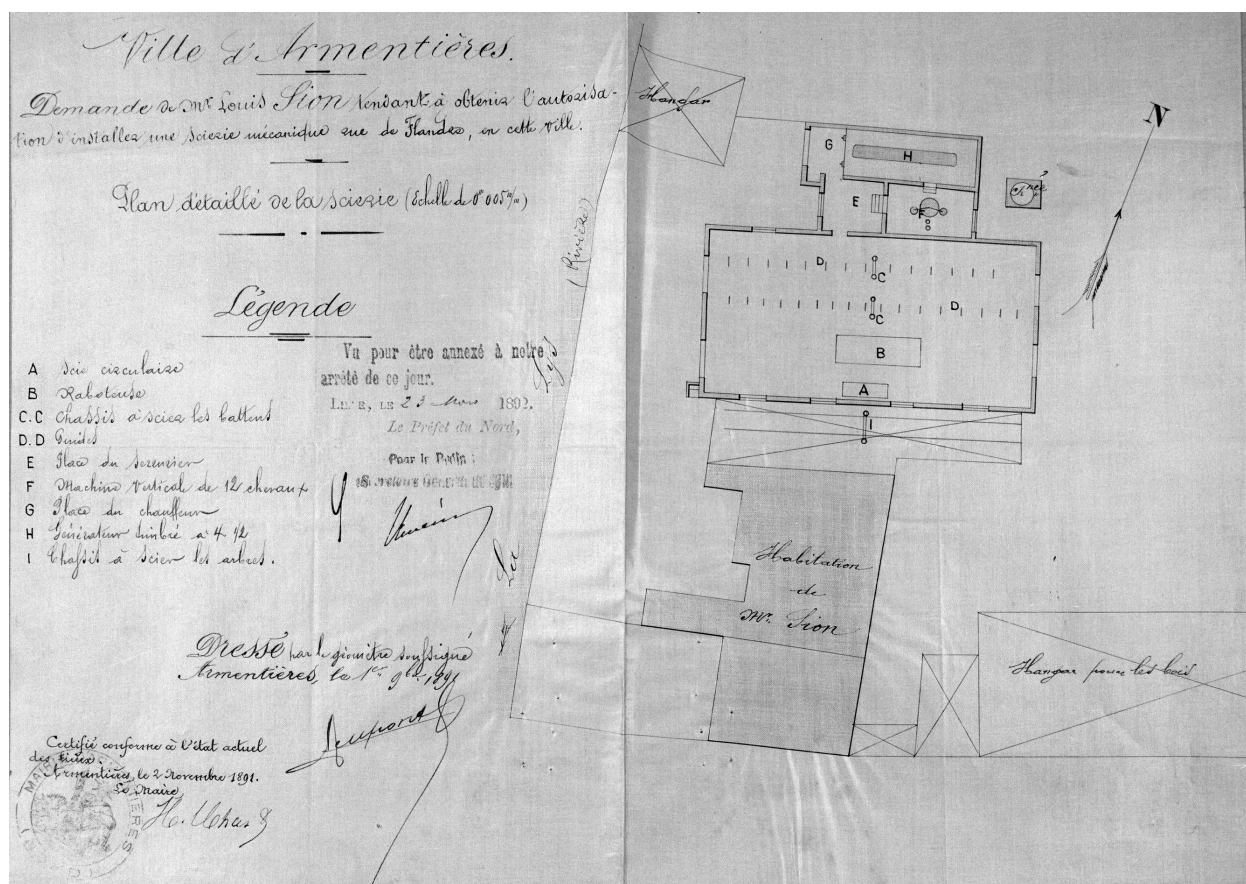 Ville d'Armentières.
Demande de Mr Louis Sion tendant à obtenir l'autorisa-
tion d'installer une scierie mécanique rue de Flandre, en cette ville.
Plan détaillé de la scierie (Echelle de 0m005m/m)
Légende
A Scie circulaire
B Raboteuse
C.C Chassis à scier les battens
D.D Guides
E Place du serrurier
F Machine Verticale de 12 chevaux
G Place du chauffeur
H Générateur timbré à 4 92
I Chassis à scier les arbres.
Vu pour être annexé à notre
arrêté de ce jour.
LILLE, LE 23 Mars 1892.
Le Préfet du Nord,
Pour le Préfet :
Secrétaire Général
Dressé par le géomètre soussigné
Armentières, le 1er 9bre 1891
Certifié conforme à l'état actuel
des lieux.
Armentières, le 2 Novembre 1891.
Le Maire
MAIRIE
Hangar
(Rivière)
Lys
La
N
G
H
E
F
Chnée
D
C
D
C
B
A
I
Habitation
de
Mr. Sion
Hangar pour les bois